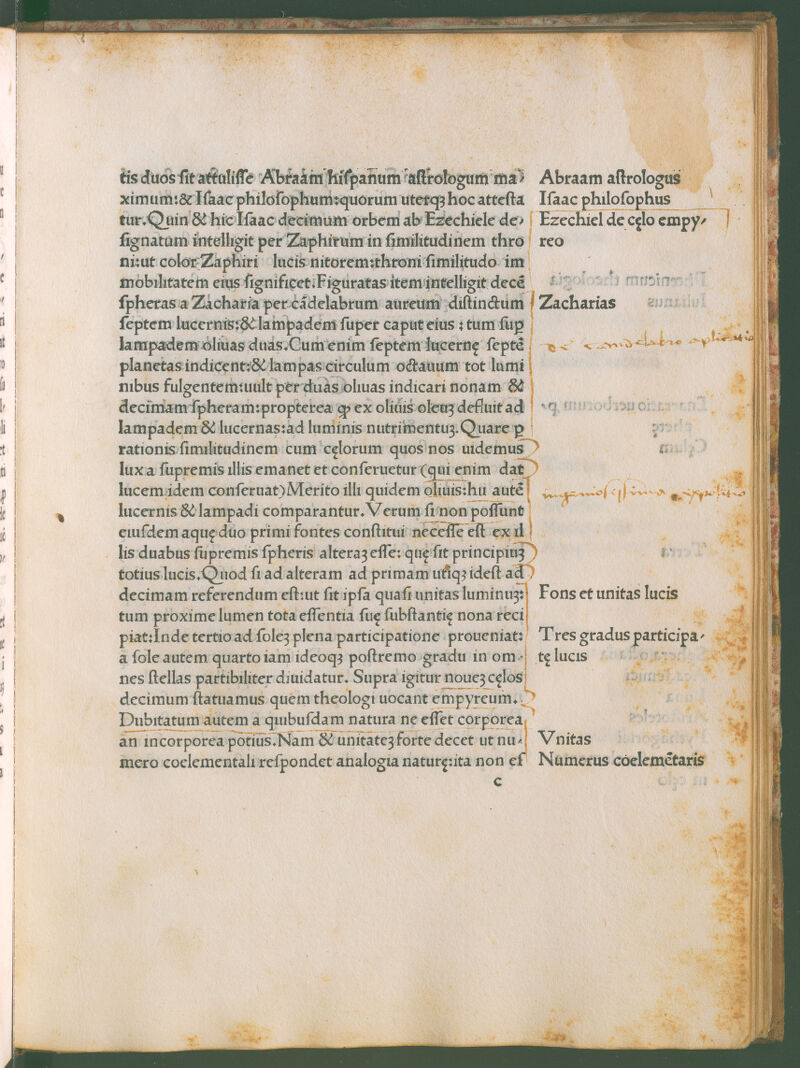 tis duos ſit attuliſſe Abraam hiſpanum aſtrologum ma⸗
ximum:& Iſaac philoſophum:quorum uterqꝫ hoc atteſta
tur.Quin & hic Iſaac decimum orbem ab Ezechiele de⸗
ſignatum intelligit per Zaphirum in ſimilitudinem thro
ni:ut color Zaphiri lucis nitorem:throni ſimilitudo im
mobilitatem eius ſignificet.Figuratas item intelligit decē
ſpheras a Zacharia per cādelabrum aureum diſtinctum
ſeptem lucernis:& lampadem ſuper caput eius : tum ſup
lampadem oliuas duas.Cum enim ſeptem lucernę ſeptē
planetas indicent:& lampas circulum octauum tot lumi
nibus fulgentem:uult per duas oliuas indicari nonam &
decimam ſpheram:propterea ꝙ ex oliuis oleuꝫ defluit ad
lampadem & lucernas:ad luminis nutrimentuꝫ.Quare p
rationis ſimilitudinem cum cęlorum quos nos uidemus
lux a ſupremis illis emanet et conſeruetur (qui enim dat
lucem idem conſeruat)Merito illi quidem oliuis:hii autē
lucernis & lampadi comparantur.Verum ſi non poſſunt
eiuſdem aquę duo primi fontes conſtitui neceſſe eſt ex il
lis duabus ſupremis ſpheris alteraꝫ eſſe: quę ſit principiuꝫ
totius lucis.Quod ſi ad alteram ad primam utiqꝫ ideſt ad
decimam referendum eſt:ut ſit ipſa quaſi unitas luminuꝫ:
tum proxime lumen tota eſſentia ſuę ſubſtantię nona reci
piat:Inde tertio ad ſoleꝫ plena participatione proueniat:
a ſole autem quarto iam ideoqꝫ poſtremo gradu in om⸗
nes ſtellas partibiliter diuidatur. Supra igitur noueꝫ cęlos
decimum ſtatuamus quem theologi uocant empyreum.
Dubitatum autem a quibuſdam natura ne eſſet corporea
an incorporea potius.Nam & unitateꝫ forte decet ut nu⸗
mero coelementali reſpondet analogia naturę:ita non eſ
c
Abraam aſtrologus
Iſaac philoſophus
Ezechiel de cęlo empy⸗
reo
Zacharias
de candelabro aplicatio
ingenioſiſſima expoſitio
Fons et unitas lucis
Tres gradus participa⸗
tę lucis
Vnitas
Numerus coelemētaris